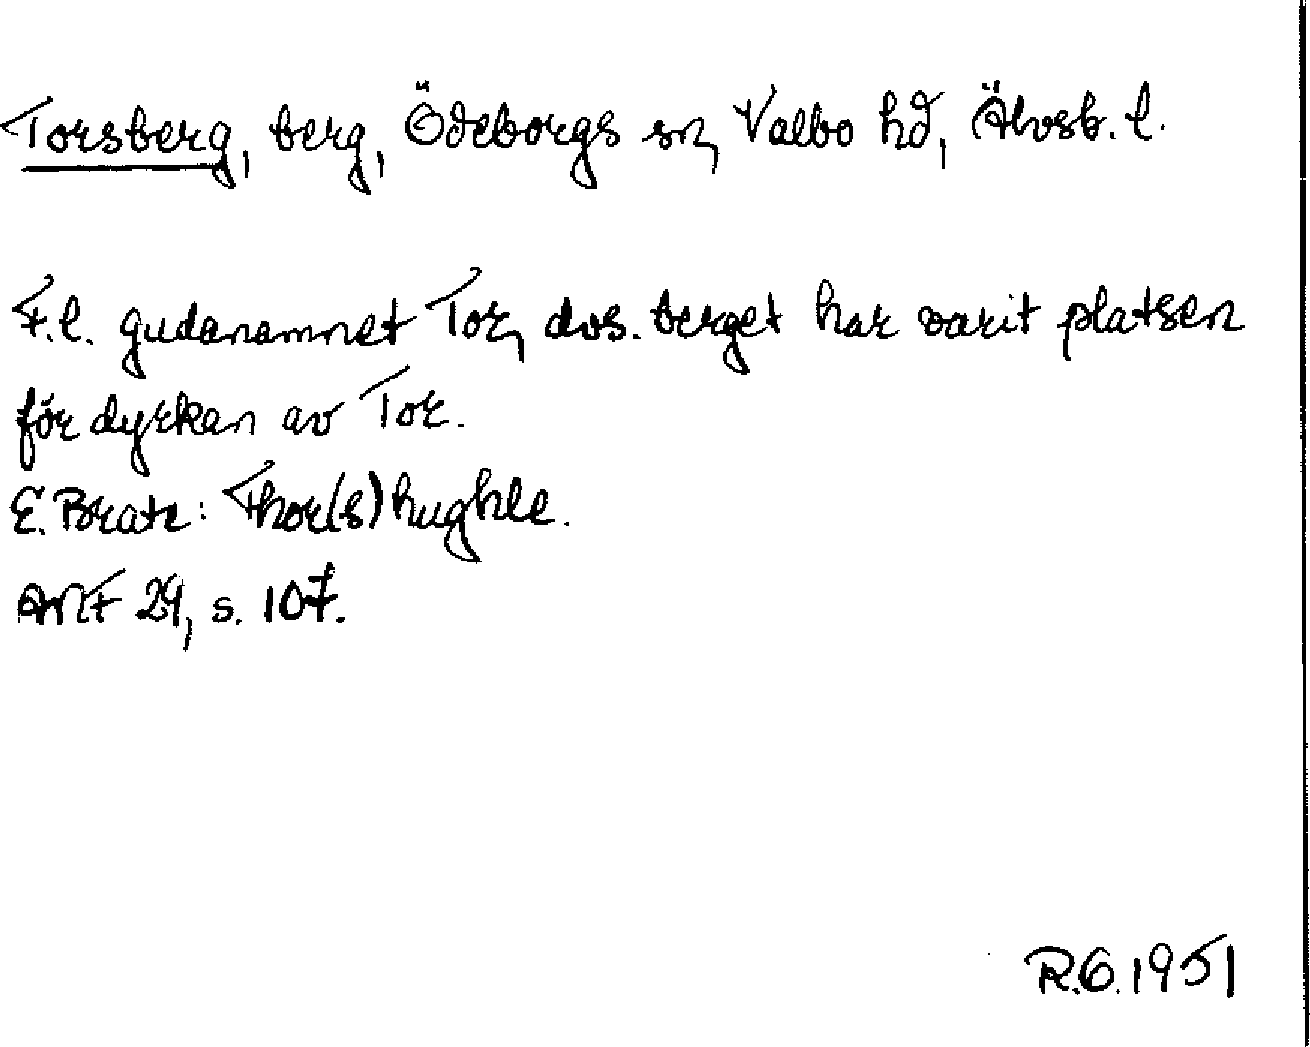 Torsberg, berg, Ödeborgs sn, Valbo hd, Älvsb. l.
F.l. gudanamnet Tor, dvs. berget har varit platsen
för dyrkan av Tor.
E. Brate: Thor(s)hughle.
ANF 29, s. 107.
R.G. 1951